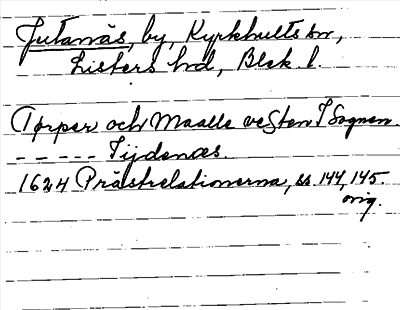 Jutanäs, by, Kyrkhults sn,
Listers hd, Blek. l.
Tørper och Maalle vesten I Sognen.
- - - - - Tijdenæs.
1624 Prästrelationerna, ss. 144, 145.
orig.